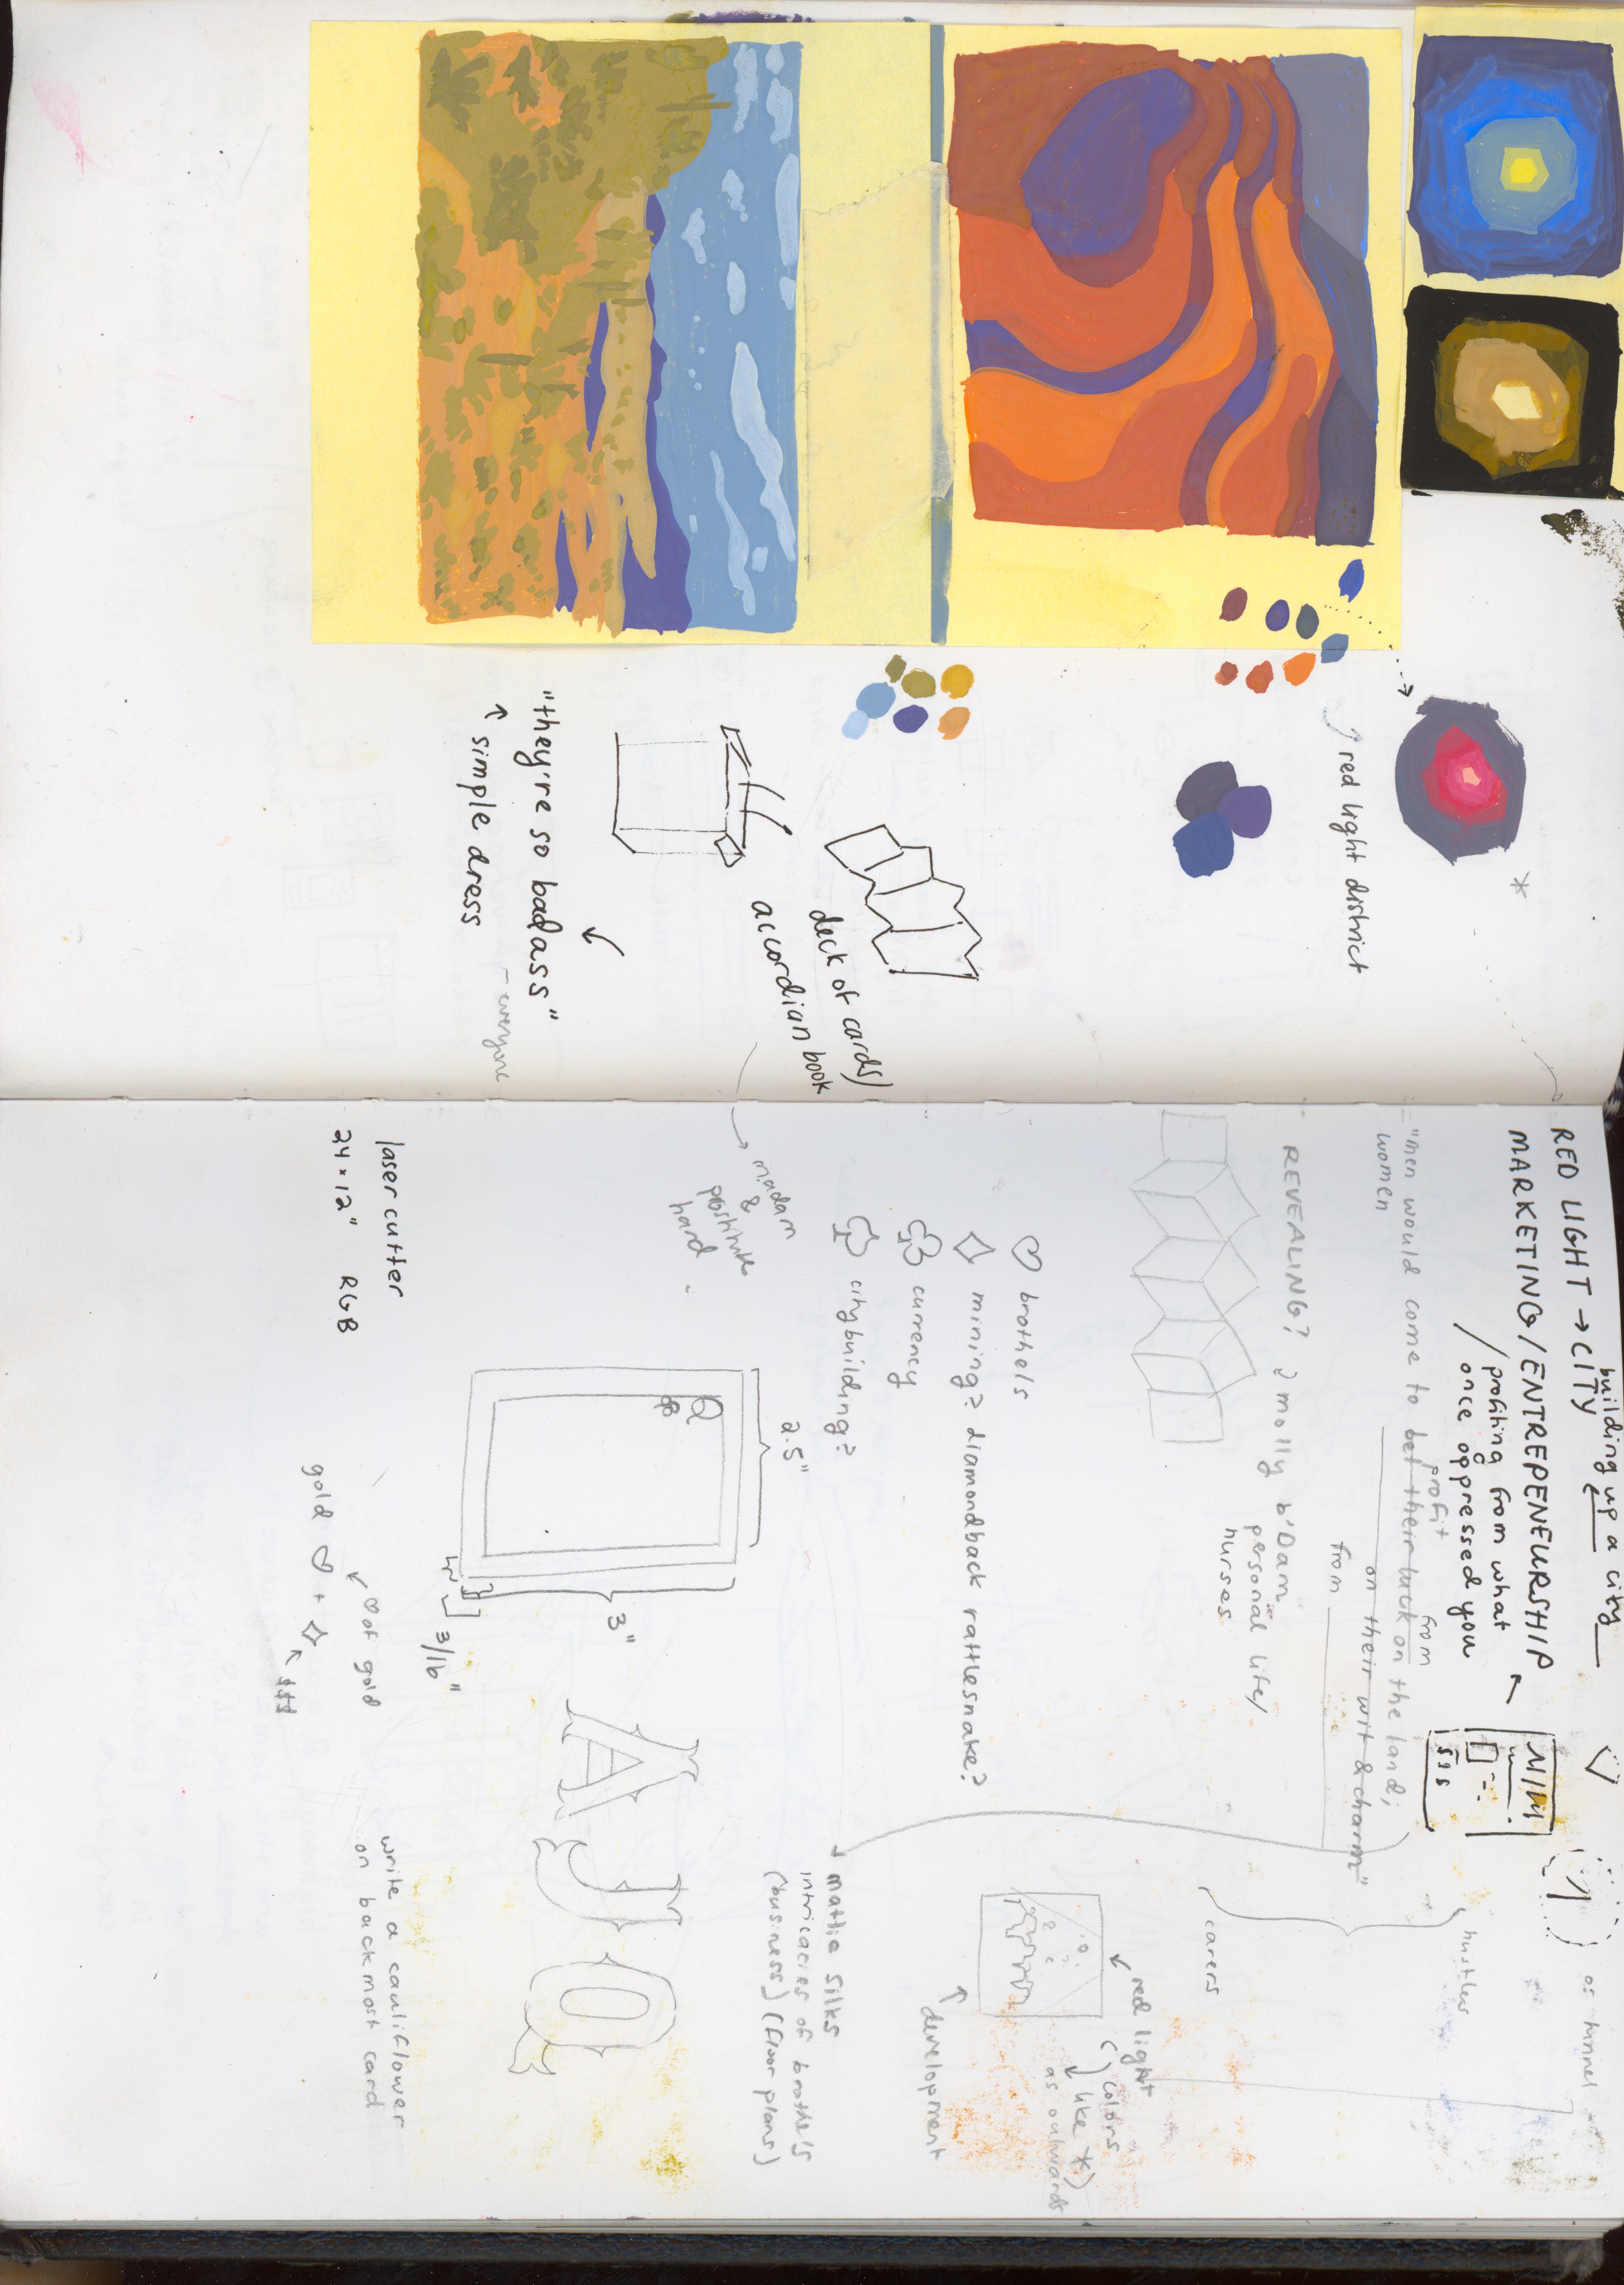 red light district
deck of cards/
accordian book
"they're so badass"
- everyone
simple dress
building up a city
RED LIGHT → CITY
MARKETING/ENTREPENEURSHIP
profiting from what
once oppressed you
"men would come to bet their luck on the land;
profit from
women
on their wit & charm"
from
REVEALING? ? molly b'Dam
personal life/
nurses
brothels
mining? diamondback rattlesnake?
currency
city building?
madam
&
prostitute
hand
hustlers
carers
red light
( ) colors
like *)
as outwards
development
mattie silks
intricacies of brothels
(business) (floor plans)
2.5"
Q
3"
3/16"
A J Q
laser cutter
24 × 12" RGB
♡ of gold
gold ♡ + ◇
$$$
write a cauliflower
on back most card